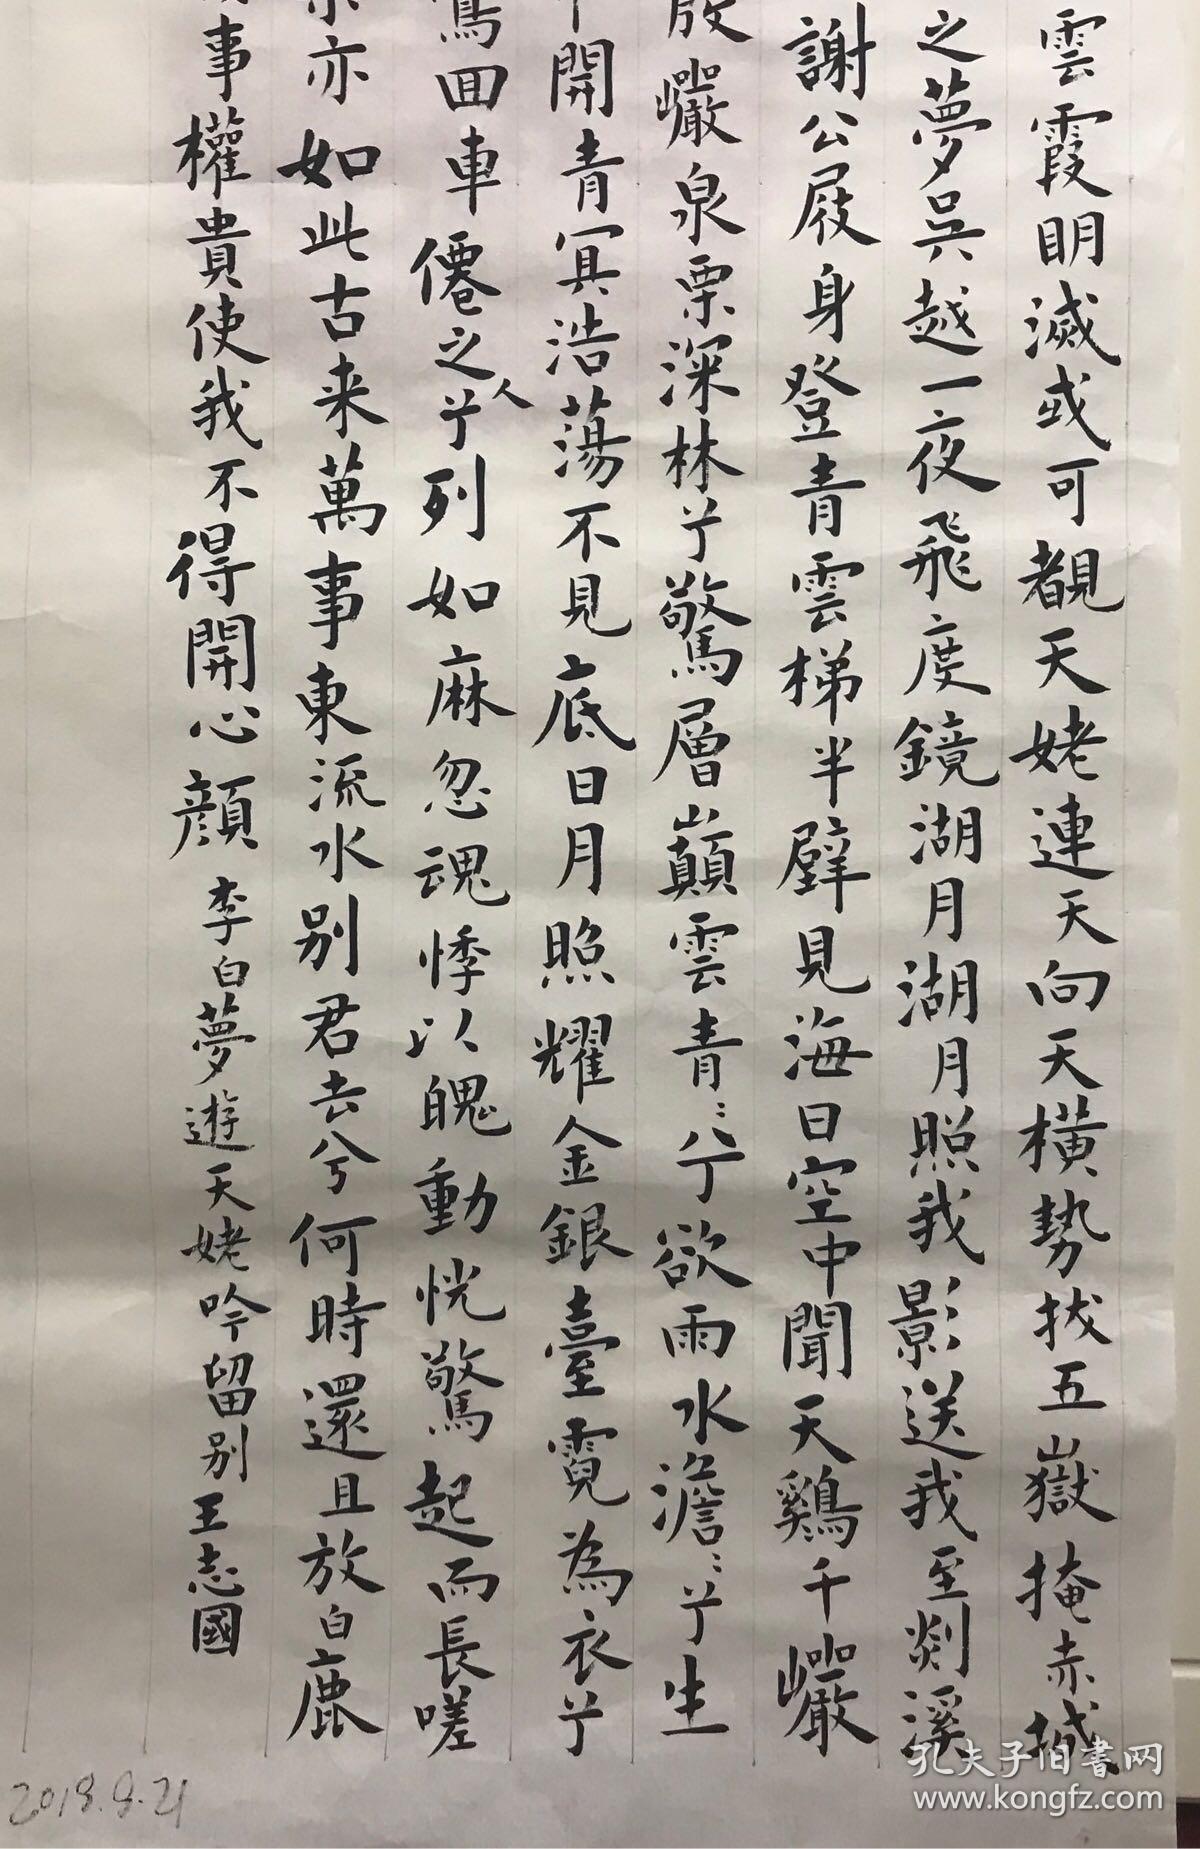 雲霞明滅或可覩天姥連天向天橫勢拔五嶽掩赤城
之夢吳越一夜飛度鏡湖月湖月照我影送我至剡溪
謝公屐身登青雲梯半壁見海日空中聞天鷄千巖
殷巖泉栗深林兮驚層巔雲青〻兮欲雨水澹〻兮生
開青冥浩蕩不見底日月照耀金銀臺霓為衣兮
鸞回車僊之人兮列如麻忽魂悸以魄動恍驚起而長嗟
亦如此古来萬事東流水别君去兮何時還且放白鹿
事權貴使我不得開心顔 李白夢遊天姥吟留别 王志國
2018.9.21
孔夫子旧書网
www.kongfz.com